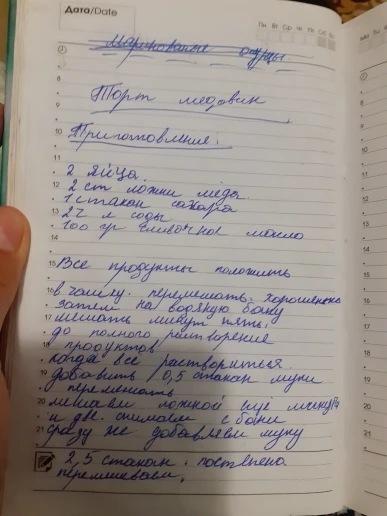 Дата/Date
Пн Вт Ср Чт Пт Сб Вс
Маринованные огурцы
8
9
Торт медовик
10
Приготовление:
11
2 яйца.
12
2 ст ложки мёда
1 стакан сахара
13
2 ч л соды
100 гр сливочное масло
14
15
Все продукты положить
16
в чашку. перемешать хорошенько
затем на водяную баню
17
мешать минут пять.
до полного растворение
18
продуктов
когда все раствориться.
19
добавить 0,5 стакан муки
перемешать
20
мешаем ложкой ещё минута
и две. снимаем с бани
21
сразу же добавляем муку
2,5 стакан. постепено
перемешаем.